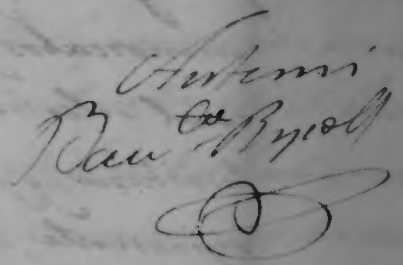 Antoni
Bau^ta Ripoll